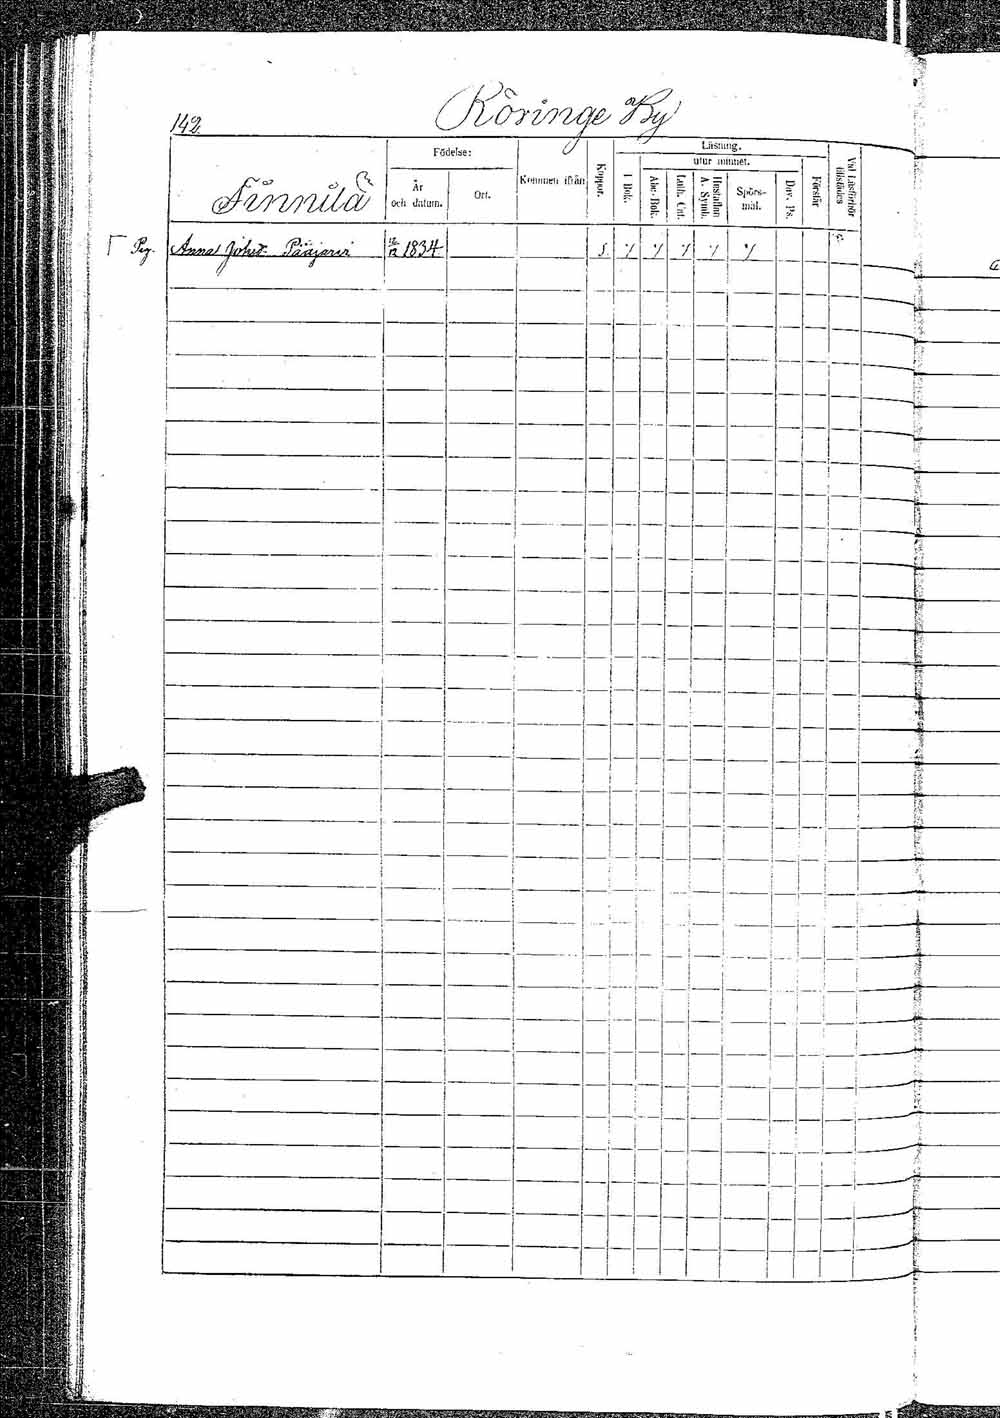 142.
Köringe By
Finnilä
Födelse:
År och datum.
Ort.
Kommen ifrån
Koppor.
Läsning.
I Bok.
utur minnet.
Abc-Bok.
Luth. Cat.
Hustaflan A. Symb.
Spörs-mål.
Dav. Ps.
Förstår
Vid Läsförhör tillstädes
Pig. Anna Johsd. Pääjärvi 1834 s.